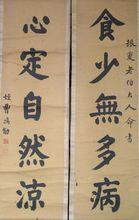 振夏老伯大人命書
食少無多病
心定自然涼
姪曹鴻勛